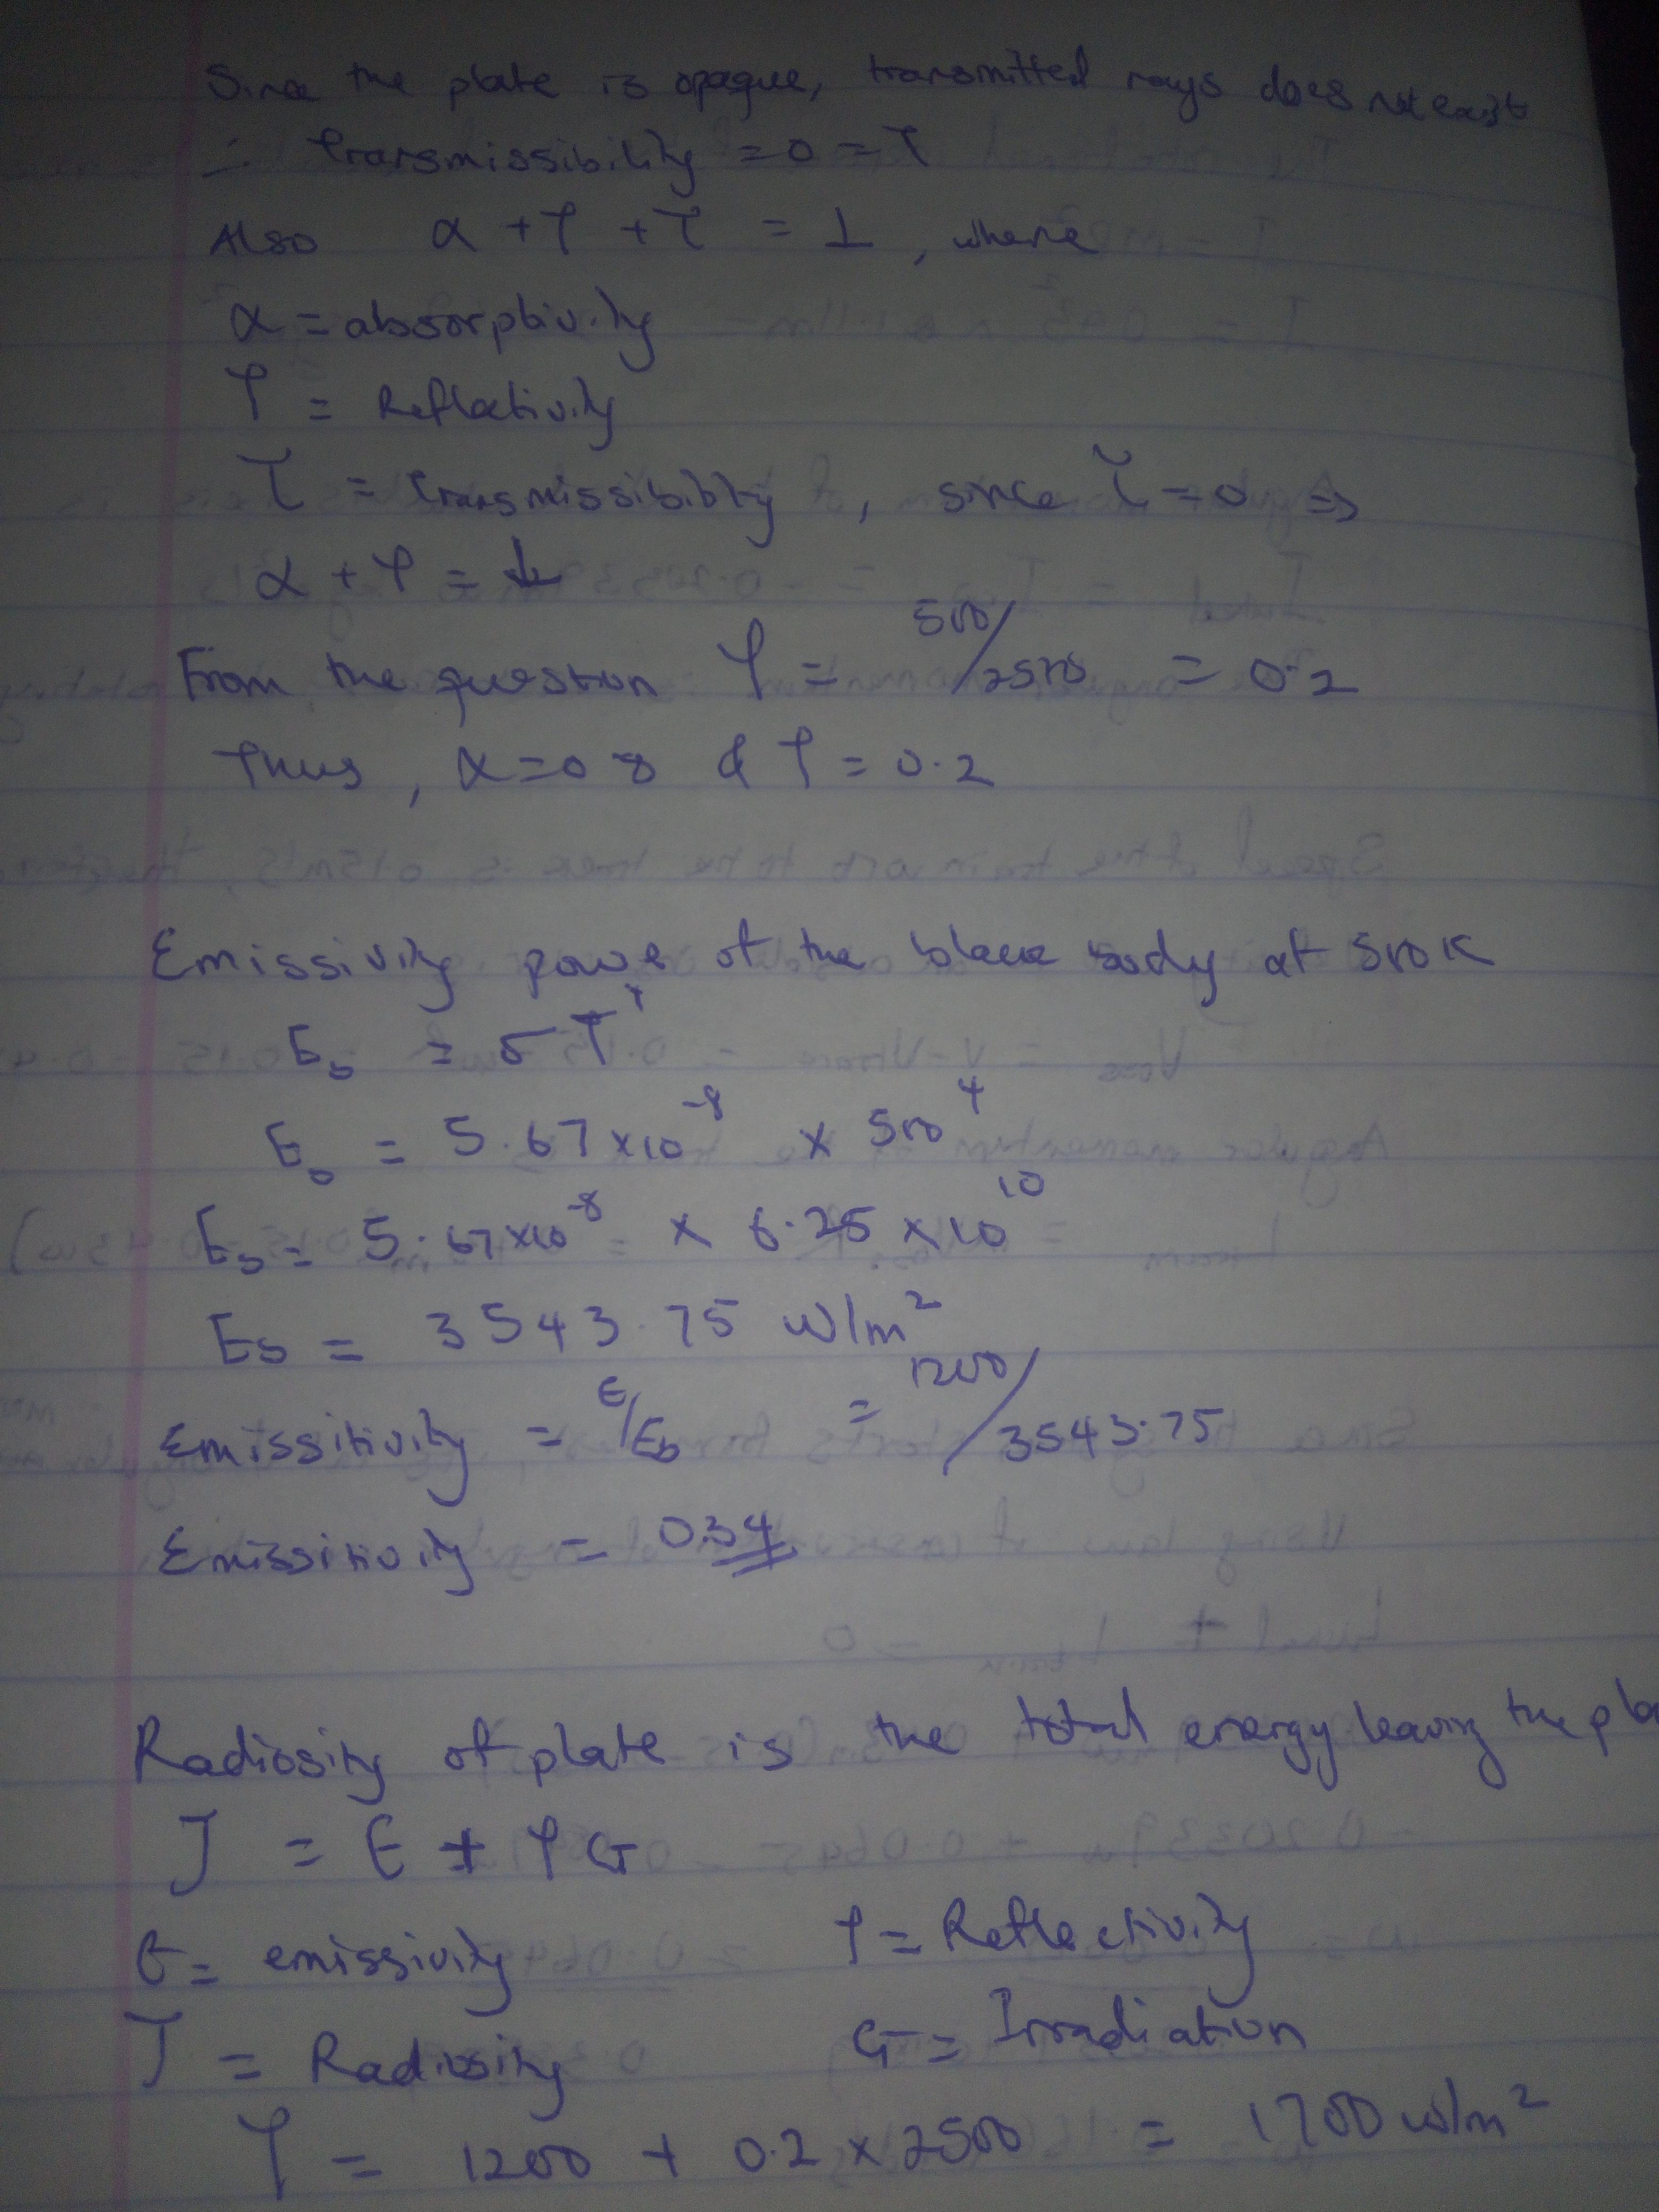 Since the plate is opaque, transmitted rays does not exist
∴ Transmissibility = 0 = τ
Also α + ρ + τ = 1, where
α = absorptivity
ρ = Reflectivity
τ = transmissibility, since τ = 0 ⇒
α + ρ = 1
From the question ρ = 500/2500 = 0.2
Thus, α = 0.8 & ρ = 0.2
Emissivity power of the black body at 500K
E_b = σT⁴
E_b = 5.67 x 10⁻⁸ x 500⁴
E_b = 5.67 x 10⁻⁸ x 6.25 x 10¹⁰
E_b = 3543.75 W/m²
Emissitivity = E/E_b = 1200/3543.75
Emissitivity = 0.34
Radiosity of plate is the total energy leaving the
J = E + ρG
E = emissivity ρ = Reflectivity
J = Radiosity G = Irradiation
J = 1200 + 0.2 x 2500 = 1700 W/m²